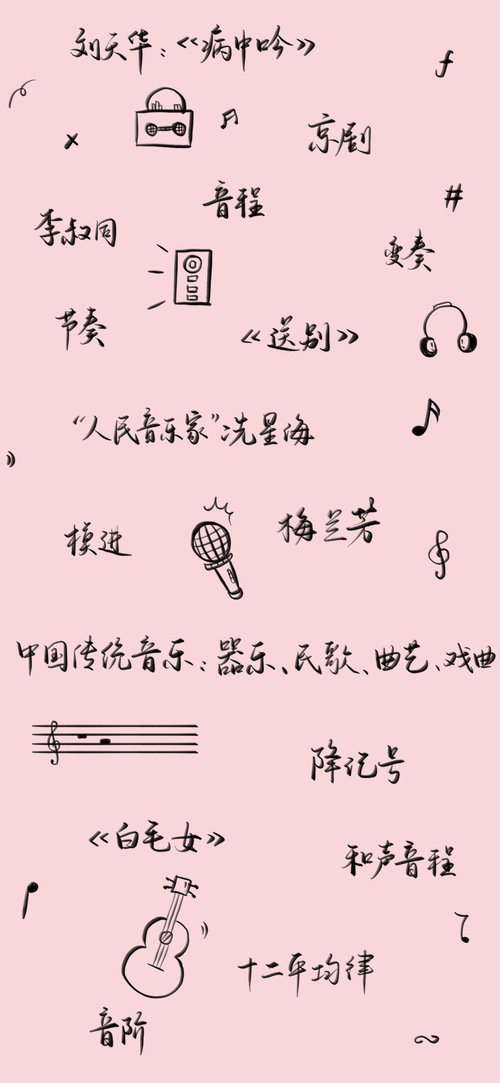 刘天华：《病中吟》
京剧
音程
李叔同
变奏
节奏
《送别》
“人民音乐家”冼星海
梅兰芳
模进
中国传统音乐：器乐、民歌、曲艺、戏曲
降记号
《白毛女》
和声音程
十二平均律
音阶